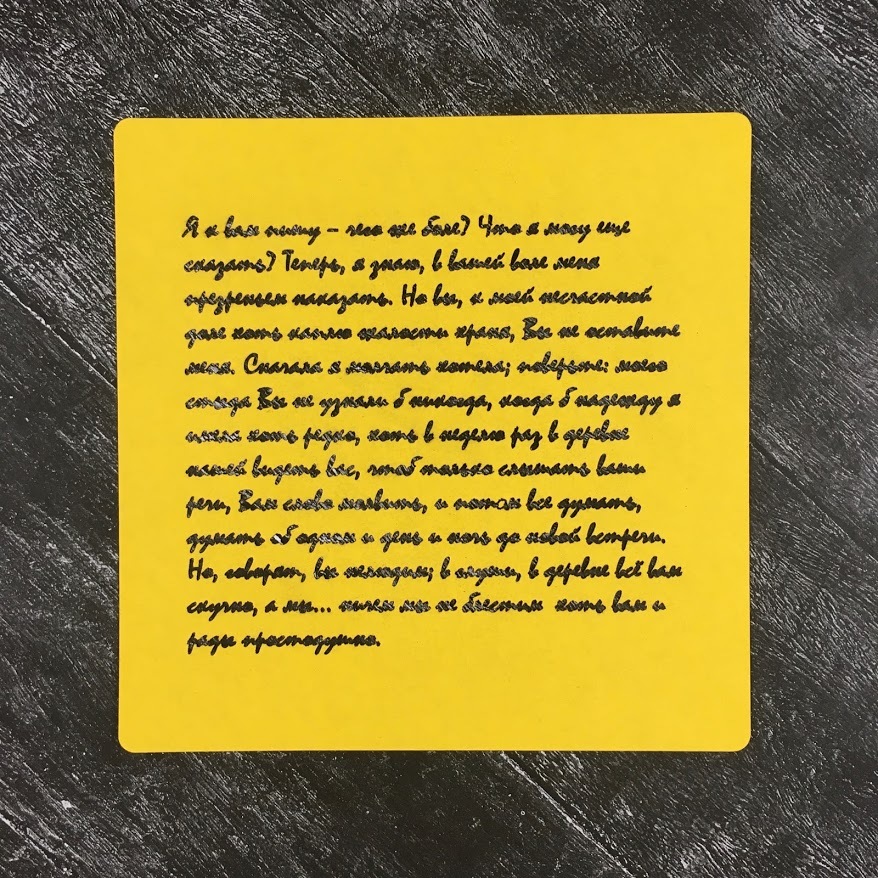 Я к вам пишу – чего же боле? Что я могу еще
сказать? Теперь, я знаю, в вашей воле меня
презреньем наказать. Но вы, к моей несчастной
доле хоть каплю жалости храня, Вы не оставите
меня. Сначала я молчать хотела; поверьте: моего
стыда Вы не узнали б никогда, когда б надежду я
имела хоть редко, хоть в неделю раз в деревне
нашей видеть вас, чтоб только слышать ваши
речи, Вам слово молвить, и потом все думать,
думать об одном и день и ночь до новой встречи.
Но, говорят, вы нелюдим; в глуши, в деревне всё вам
скучно, а мы... ничем мы не блестим хоть вам и
рады простодушно.